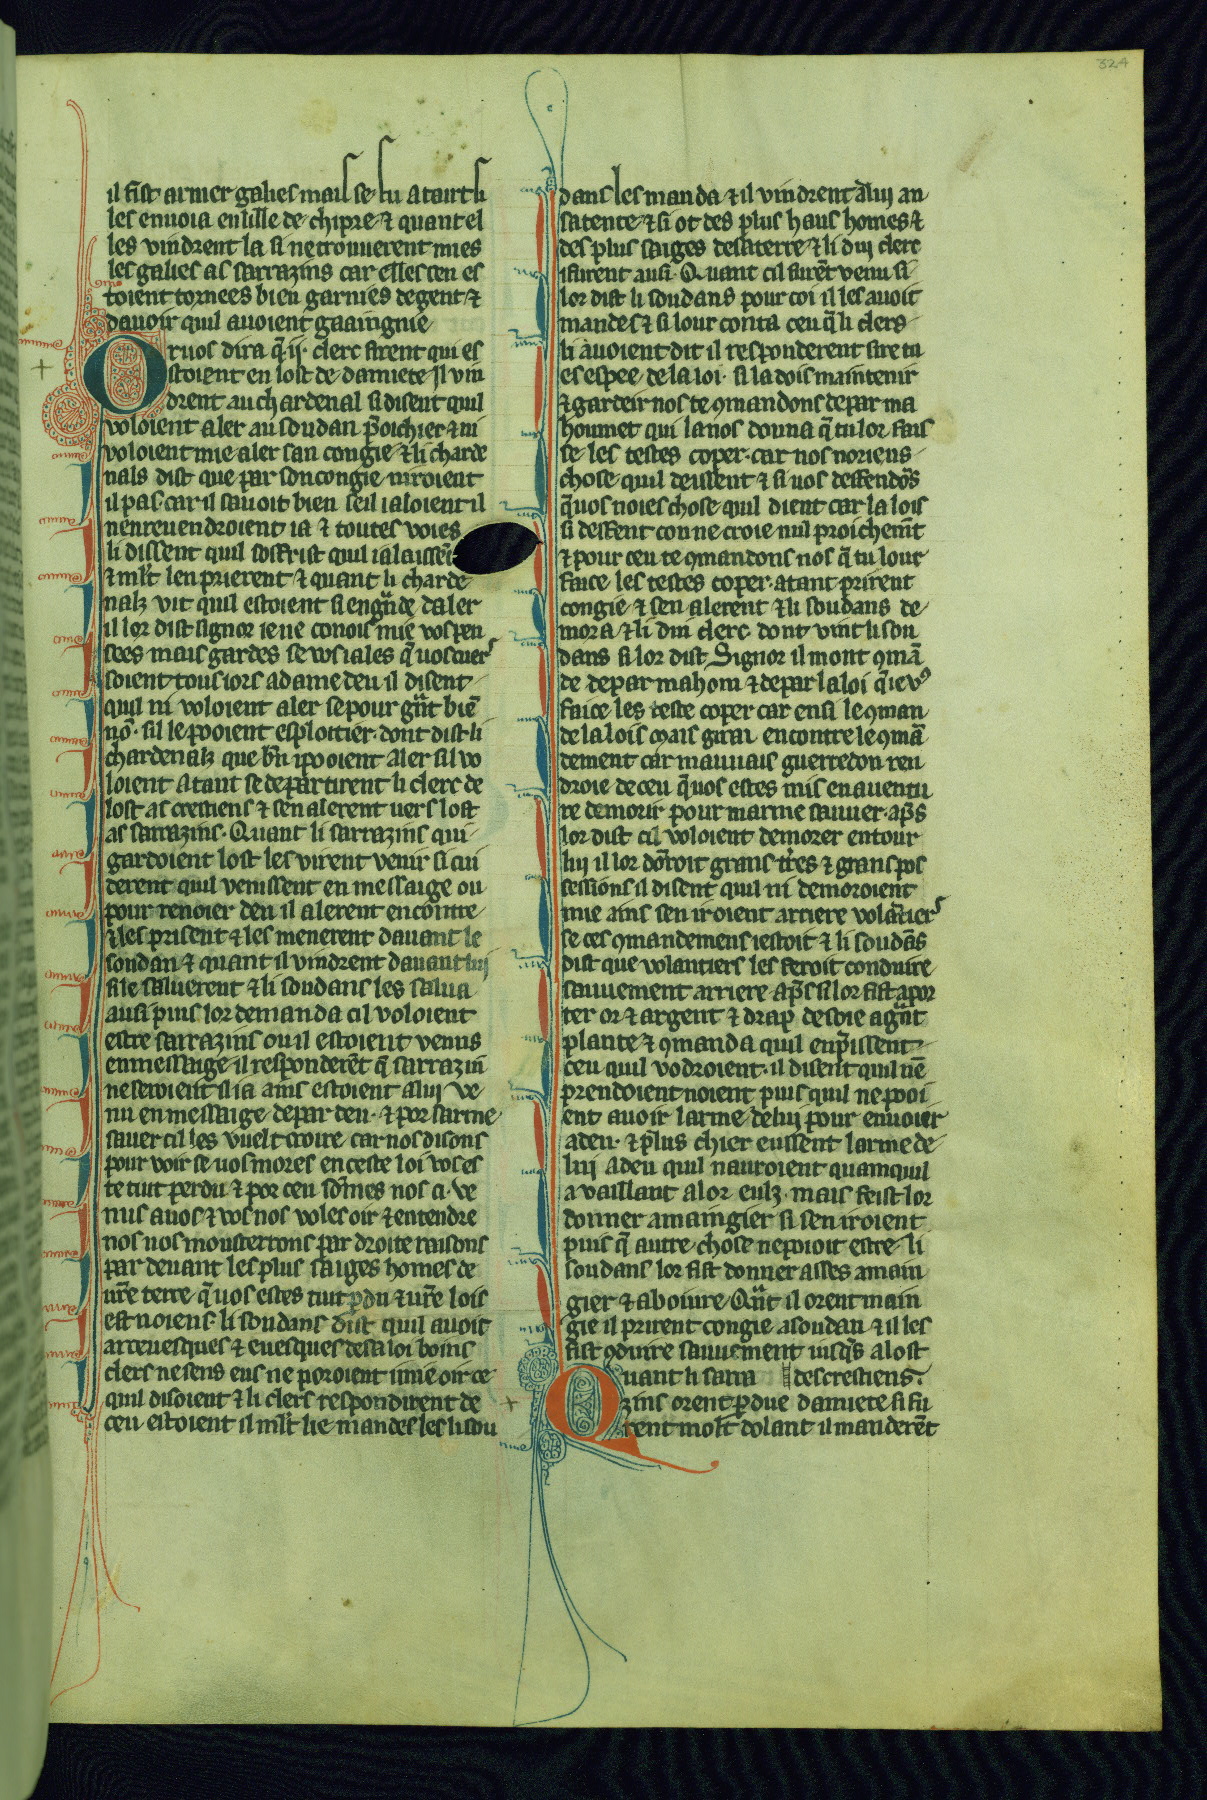 324
il fist armer galies mais se fu a tart si
les enuoia en lille de chipre ⁊ quant el
les vindrent la si ne trouuerent mies
les galies as sarrazins car elles sen es
toient tornees bien garnies de gent ⁊
dauoir quil auoient gaaingnie
Or uos dira q̃ .ij. clerc furent qui es
stoient en lost de damiete Il vin
drent au chardenal si disent quil
voloient aler au soudan p̃oichier ⁊ ni
voloient mie aler san congie ⁊ li charde
nals dist que par son congie niroient
il pas car il sauoit bien seil i aloient il
nen reuendroient ia ⁊ toutes voies
li dissent quil soffrist quil i alaissẽt
⁊ ml't len prierent ⁊ quant li charde
nalz vit quil estoient si en grãde daler
il lor dist signor ie ne conois mie vos pen
sees mais gardes se vos i ales q̃ uos cuers
soient tous iors a dame deu il disent
quil ni voloient aler se pour grãt biẽ
nõ sil le pooient esploitier dont dist li
chardenalz que bñ i pooient aler sil vo
loient Atant se departirent li clerc de
lost as crestiens ⁊ sen alerent uers lost
as sarrazins. Quant li sarrazins qui
gardoient lost les virent venir si cui
derent quil venissent en messaige ou
pour renoier deu il alerent encontre
⁊ les prisent ⁊ les menerent dauant le
soudan ⁊ quant il vindrent dauant luj
si le saluerent ⁊ li soudans les salua
ausi puis lor demanda cil voloient
estre sarrazins ou il estoient venus
en messaige il responderẽt q̃ sarrazin
ne seroient il ia ains estoient a luj ve
nu en messaige de par deu ⁊ por sarme
sauer cil les vuelt croire car nos disons
pour voir se uos mores en ceste loi vos es
te tuit perdu ⁊ por ceu sõmes nos ci ve
nus a uos ⁊ vos nos voles oir ⁊ entendre
nos nos mousterrons par droite raisons
par deuant les plus saiges homes de
ur̃e terre q̃ uos estes tuit ꝑdu ⁊ ur̃e lois
est noiens li soudans dist quil auoit
arceuesques ⁊ euesques de sa loi boins
clers ne sens eus ne poroient il mie oir ce
quil disoient ⁊ li clers respondirent de
ceu estoient il ml't lie mandes les li sou
dans les manda ⁊ il vindrent a luj an
sa tente ⁊ si ot des plus haus homes ⁊
des plus saiges de sa terre ⁊ li duj clerc
i furent ausi. Quant cil furẽt venu si
lor dist li soudans pour coi il les auoit
mandes ⁊ si lour conta ceu q̃ li clers
li auoient dit il responderent sire tu
es espee de la loi si la dois maintenir
⁊ gardeir nos te ꝯmandons de par ma
houmet qui la nos donna q̃ tu lor fais
se les testes coper car nos noriens
chose quil deissent ⁊ si uos deffendõs
q̃ uos noies chose quil dient car la lois
si deffent con ne croie nul proichemẽt
⁊ pour ceu te ꝯmandons nos q̃ tu lour
faice les testes coper atant prirent
congie ⁊ sen alerent ⁊ li soudans de
mora ⁊ li dui clerc dont vint li sou
dans si lor dist Signor il mont ꝯmã
de de par mahom ⁊ de par la loi q̃ ie vꝰ
faice les teste coper car ensi le ꝯman
de la lois mais girai encontre le ꝯmã
dement car mauuais guerredon ren
droie de ceu q̃ uos estes mis en auentu
re de morir pour marme sauuer ap̃s
lor dist cil voloient demorer entour
luj il lor dõroit grans t'res ⁊ grans pos
sessions il disent quil ni demoroient
mie ains sen iroient arriere volãtiers
se ces ꝯmandemens i estoit ⁊ li soudãs
dist que volantiers les feroit conduire
sauuement arriere ap̃s si lor fist apor
ter or ⁊ argent ⁊ drap de soie a grãt
plante ⁊ ꝯmanda quil enp̃issent
ceu quil vodroient il disent quil nẽ
prendoient noient puis quil ne pooi
ent auoir larme de luj pour enuoier
a deu ⁊ plus chier eussent larme de
luj a deu quil nauroient quanquil
a vaillant a lor eulz mais feist lor
donner a maingier si sen iroient
puis q̃ autre chose ne pooit estre li
soudans lor fist donner asses a main
gier ⁊ a boiure Qãt il orent main
gie il prirent congie a soudan ⁊ il les
fist ꝯduire sauuement iusq̃s a lost
Quant li sarra des crestiens.
zins orent ꝑdue damiete si fu
rent molt dolant il manderẽt